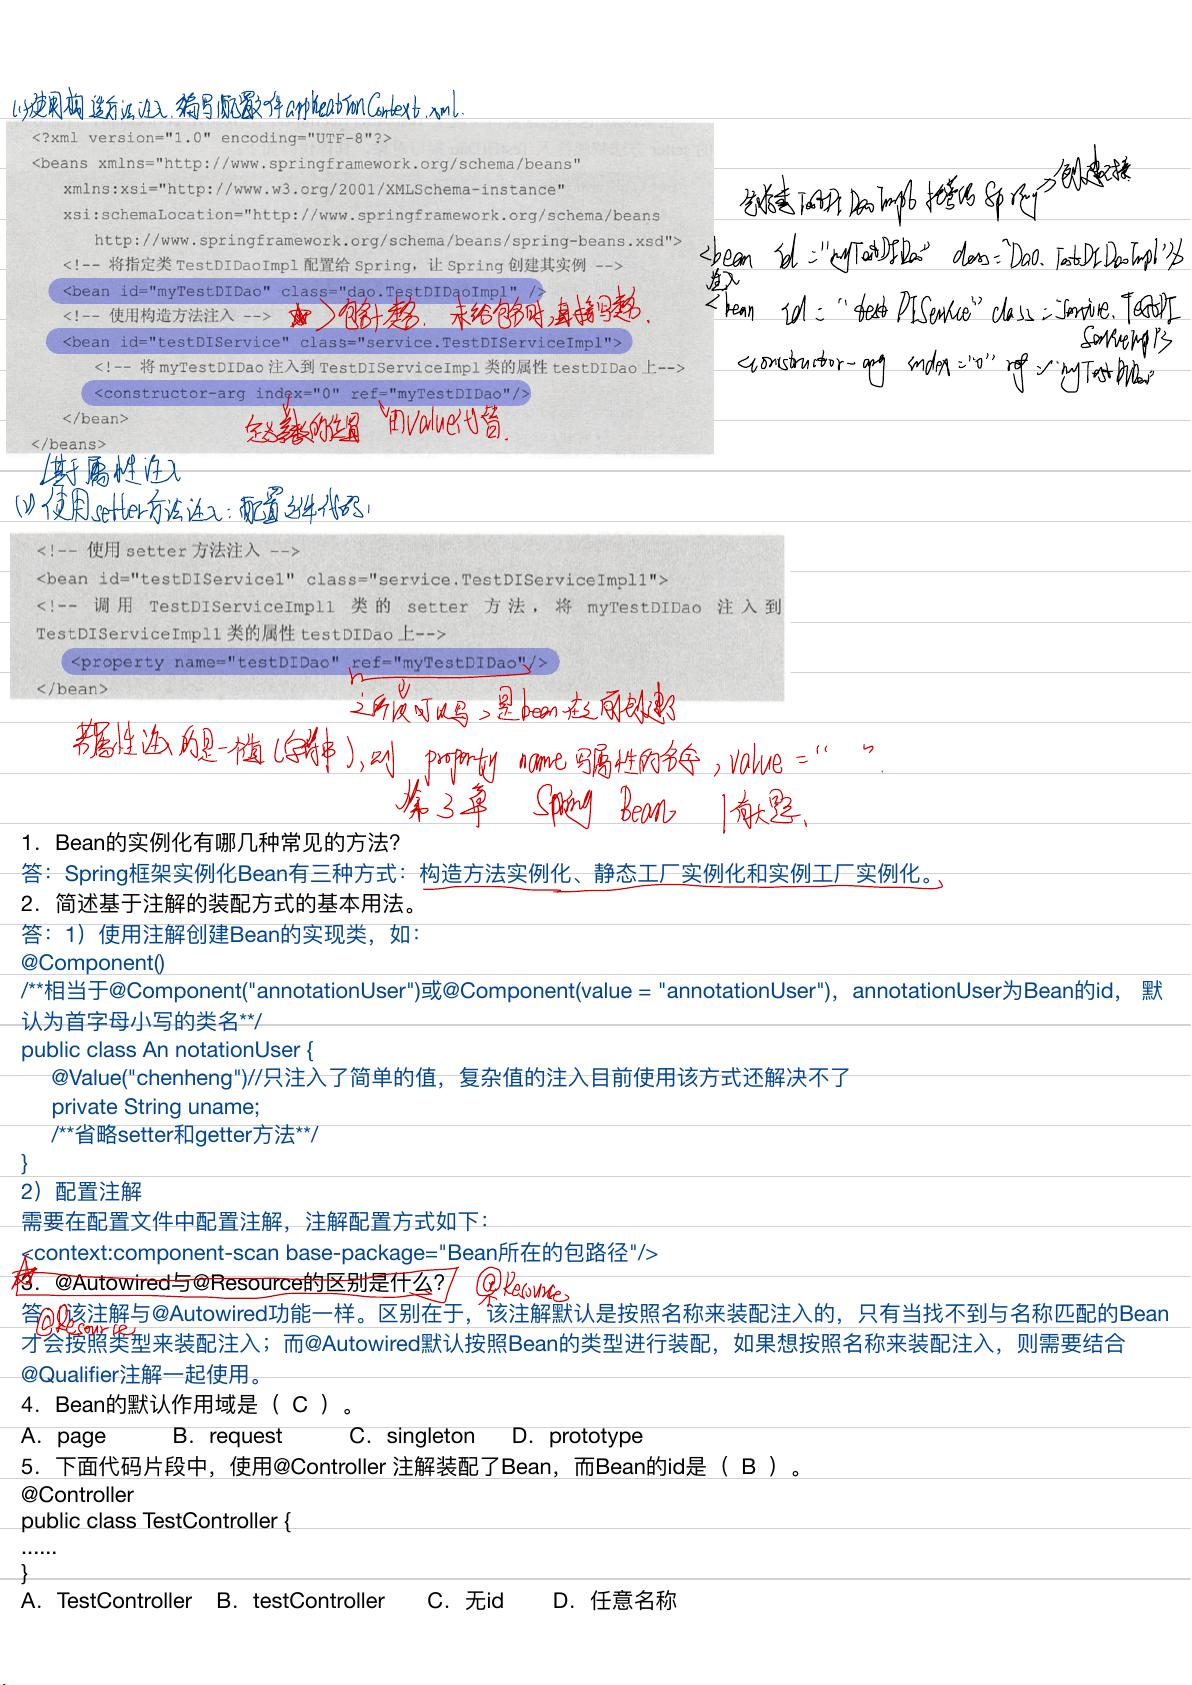 (1)使用构造方法注入,编写配置文件applicationContext.xml.
<?xml version="1.0" encoding="UTF-8"?>
<beans xmlns="http://www.springframework.org/schema/beans"
xmlns:xsi="http://www.w3.org/2001/XMLSchema-instance"
xsi:schemaLocation="http://www.springframework.org/schema/beans
http://www.springframework.org/schema/beans/spring-beans.xsd">
<!-- 将指定类 TestDIDaoImpl 配置给 Spring，让 Spring 创建其实例 -->
<bean id="myTestDIDao" class="dao.TestDIDaoImpl" />
<!-- 使用构造方法注入 -->
包名+类名. 未给包名时,直接写类名.
<bean id="testDIService" class="service.TestDIServiceImpl">
<!-- 将 myTestDIDao 注入到 TestDIServiceImpl 类的属性 testDIDao 上-->
<constructor-arg index="0" ref="myTestDIDao"/>
</bean>
定义参数的位置 用value代替.
</beans>
Spring
<bean id="myTestDIDao" class="Dao.TestDIDaoImpl"/>
注入
<bean id="testDIService" class=Service.TestDI
ServiceImpl">
<constructor-arg index="0" ref="myTestDIDao"
基于属性注入
(2)使用setter方法注入:配置文件代码:
<!-- 使用 setter 方法注入 -->
<bean id="testDIService1" class="service.TestDIServiceImpl1">
<!-- 调用 TestDIServiceImpl1 类的 setter 方法，将 myTestDIDao 注入到
TestDIServiceImpl1 类的属性 testDIDao 上-->
<property name="testDIDao" ref="myTestDIDao"/>
</bean>
之所以可以写,是bean在之前创建了
若属性注入的是一个值(字符串),则 property name写属性的名字,value=" ".
第3章 Spring Bean 1有大题.
1．Bean的实例化有哪几种常见的方法?
答：Spring框架实例化Bean有三种方式：构造方法实例化、静态工厂实例化和实例工厂实例化。
2．简述基于注解的装配方式的基本用法。
答：1）使用注解创建Bean的实现类，如：
@Component()
/**相当于@Component("annotationUser")或@Component(value = "annotationUser")，annotationUser为Bean的id， 默
认为首字母小写的类名**/
public class An notationUser {
@Value("chenheng")//只注入了简单的值，复杂值的注入目前使用该方式还解决不了
private String uname;
/**省略setter和getter方法**/
}
2）配置注解
需要在配置文件中配置注解，注解配置方式如下：
<context:component-scan base-package="Bean所在的包路径"/>
3．@Autowired与@Resource的区别是什么? @Resource
答：该注解与@Autowired功能一样。区别在于，该注解默认是按照名称来装配注入的，只有当找不到与名称匹配的Bean
@Resource
才会按照类型来装配注入；而@Autowired默认按照Bean的类型进行装配，如果想按照名称来装配注入，则需要结合
@Qualifier注解一起使用。
4．Bean的默认作用域是（ C ）。
A．page B．request C．singleton D．prototype
5．下面代码片段中，使用@Controller 注解装配了Bean，而Bean的id是（ B ）。
@Controller
public class TestController {
......
}
A．TestController B．testController C．无id D．任意名称